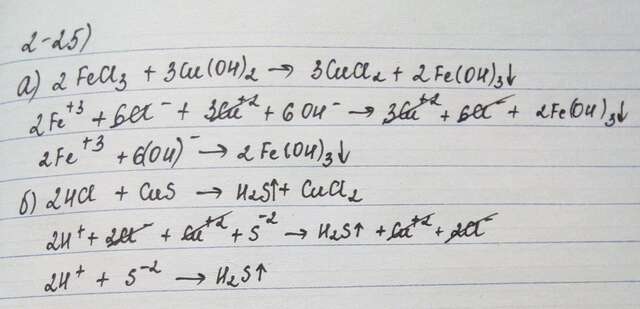 2-25)
а) 2FeCl₃ + 3Cu(OH)₂ → 3CuCl₂ + 2Fe(OH)₃↓
2Fe⁺³ + 6Cl⁻ + 3Cu⁺² + 6OH⁻ → 3Cu⁺² + 6Cl⁻ + 2Fe(OH)₃↓
2Fe⁺³ + 6(OH)⁻ → 2Fe(OH)₃↓
б) 2HCl + CuS → H₂S↑ + CuCl₂
2H⁺ + 2Cl⁻ + Cu⁺² + S⁻² → H₂S↑ + Cu⁺² + 2Cl⁻
2H⁺ + S⁻² → H₂S↑